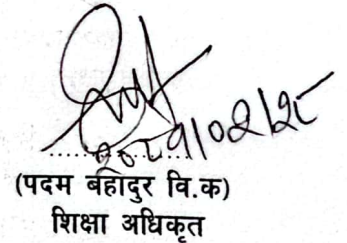 २०८१।०२।२८
(पदम बहादुर वि.क)
शिक्षा अधिकृत